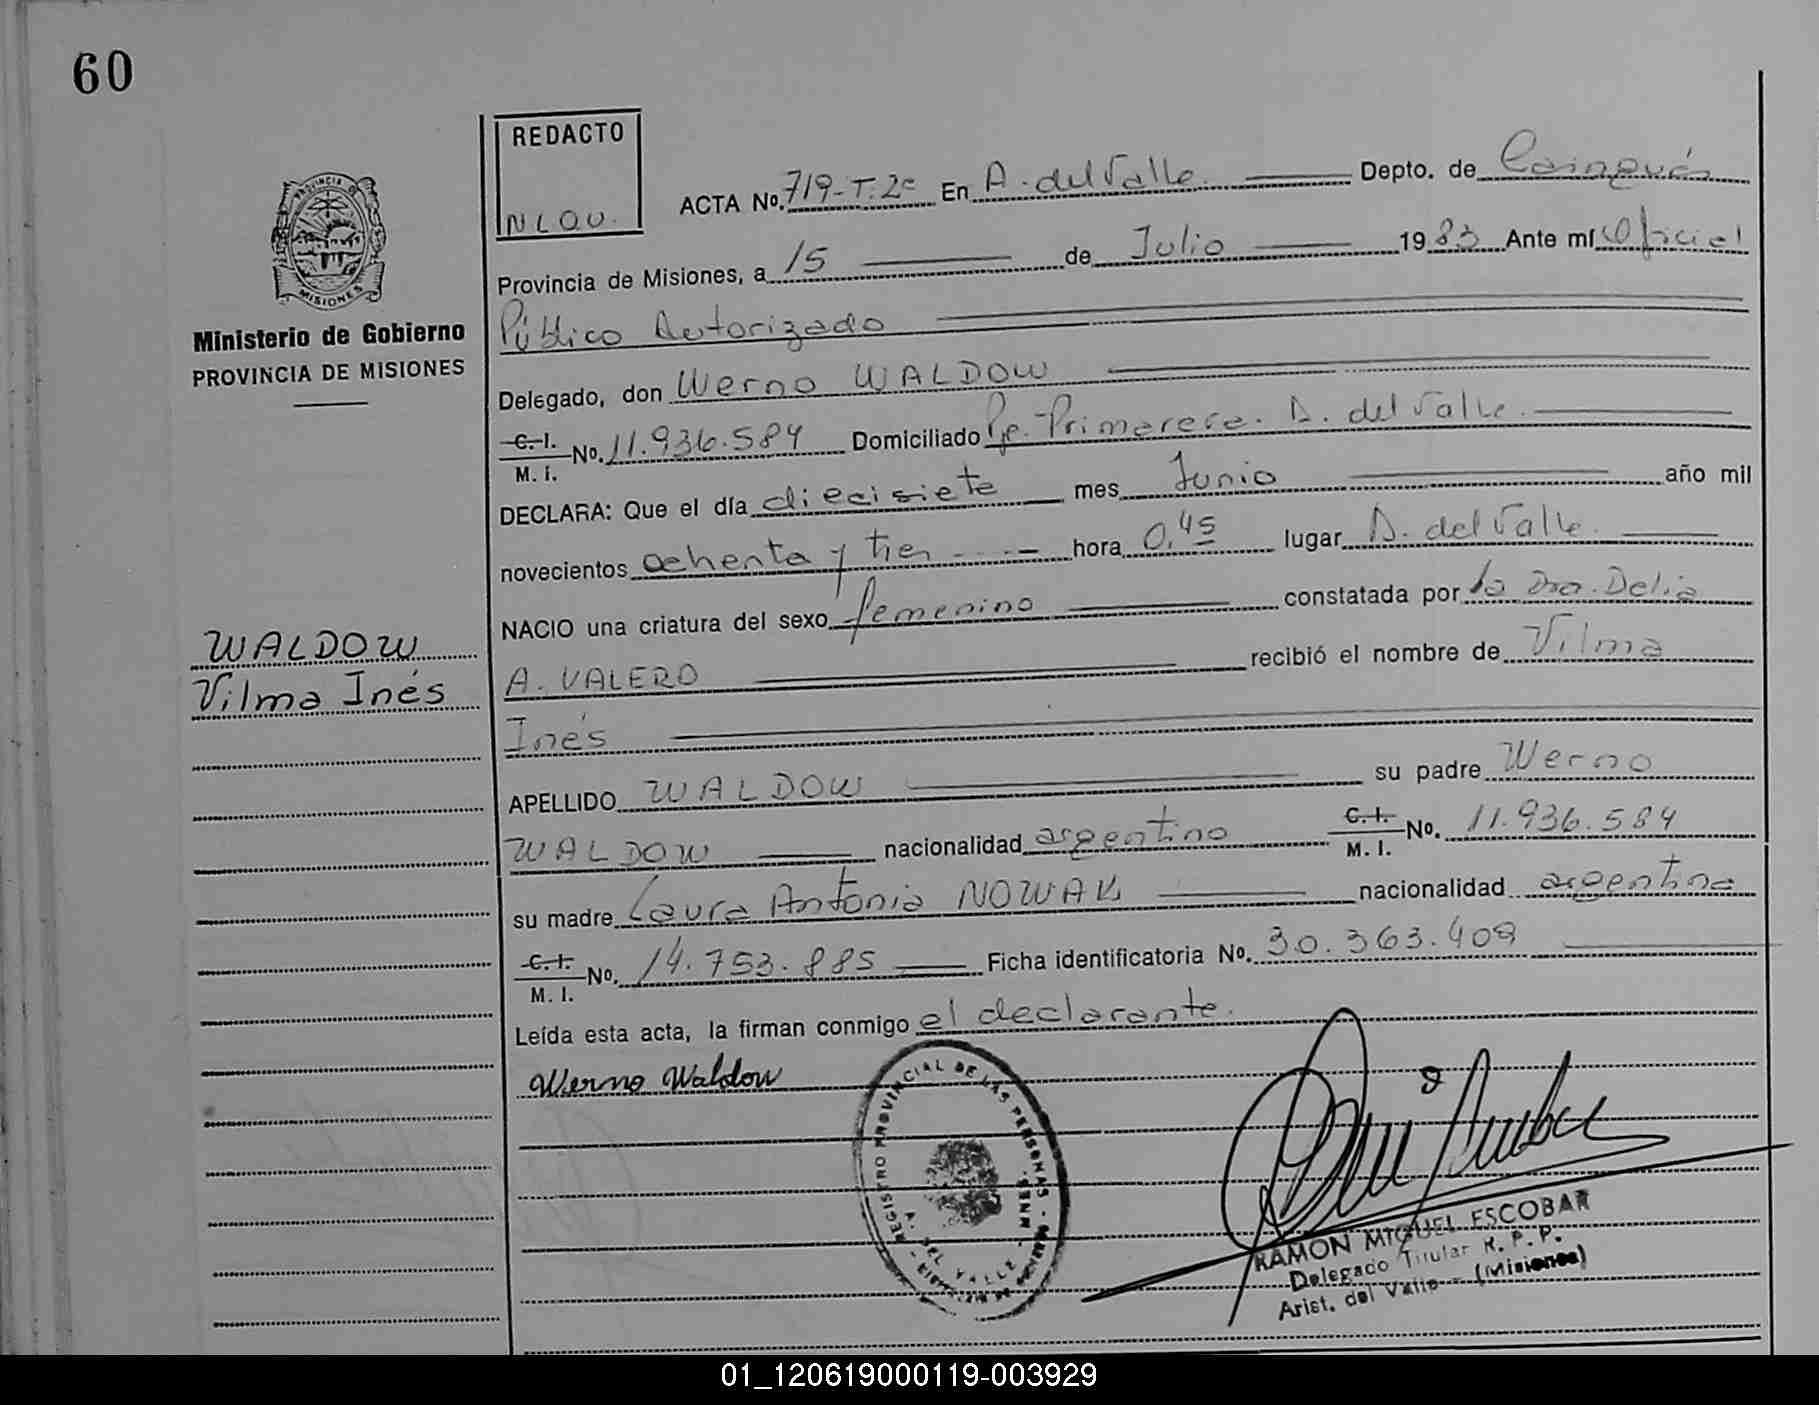 60
REDACTO
NLQU.
ACTA No. 719-T.2º En A. del Valle Depto. de Cainguás
PROVINCIA DE
MISIONES
Provincia de Misiones, a 15 de Julio 1983 Ante mí Oficial
Ministerio de Gobierno
PROVINCIA DE MISIONES
Público Autorizado
Delegado, don Werno WALDOW
C. I.
M. I. No. 11.936.584 Domiciliado Pje. Primavera. A. del Valle.
DECLARA: Que el día diecisiete mes Junio año mil
novecientos ochenta y tres hora 0,45 lugar A. del Valle.
NACIO una criatura del sexo femenino constatada por la Dra. Delia
WALDOW
Vilma Inés
A. VALERO recibió el nombre de Vilma
Inés
APELLIDO WALDOW su padre Werno
WALDOW nacionalidad argentino C. I.
M. I. No. 11.936.584
su madre Laura Antonia NOWAK nacionalidad argentina
C. I.
M. I. No. 14.753.885 Ficha identificatoria No. 30.363.408
Leída esta acta, la firman conmigo el declarante.
Werno Waldow
REGISTRO PROVINCIAL DE LAS PERSONAS
A. DEL VALLE
RAMON MIGUEL ESCOBAR
Delegado Titular R. P. P.
Arist. del Valle - (Misiones)
01_120619000119-003929